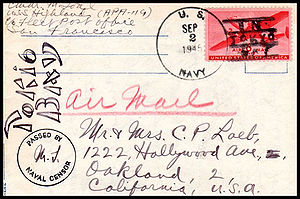 (APA-119)
c/o Fleet Post Office
San Francisco
U. S.
SEP
2
1945
NAVY
IN
TOKYO
BAY
UNITED STATES OF AMERICA
TOKYO
BAY
Air Mail
PASSED BY
M.J.
NAVAL CENSOR
Mr. & Mrs. C. P. Loeb,
1222, Hollywood Ave.,
Oakland, 2,
California, U.S.A.